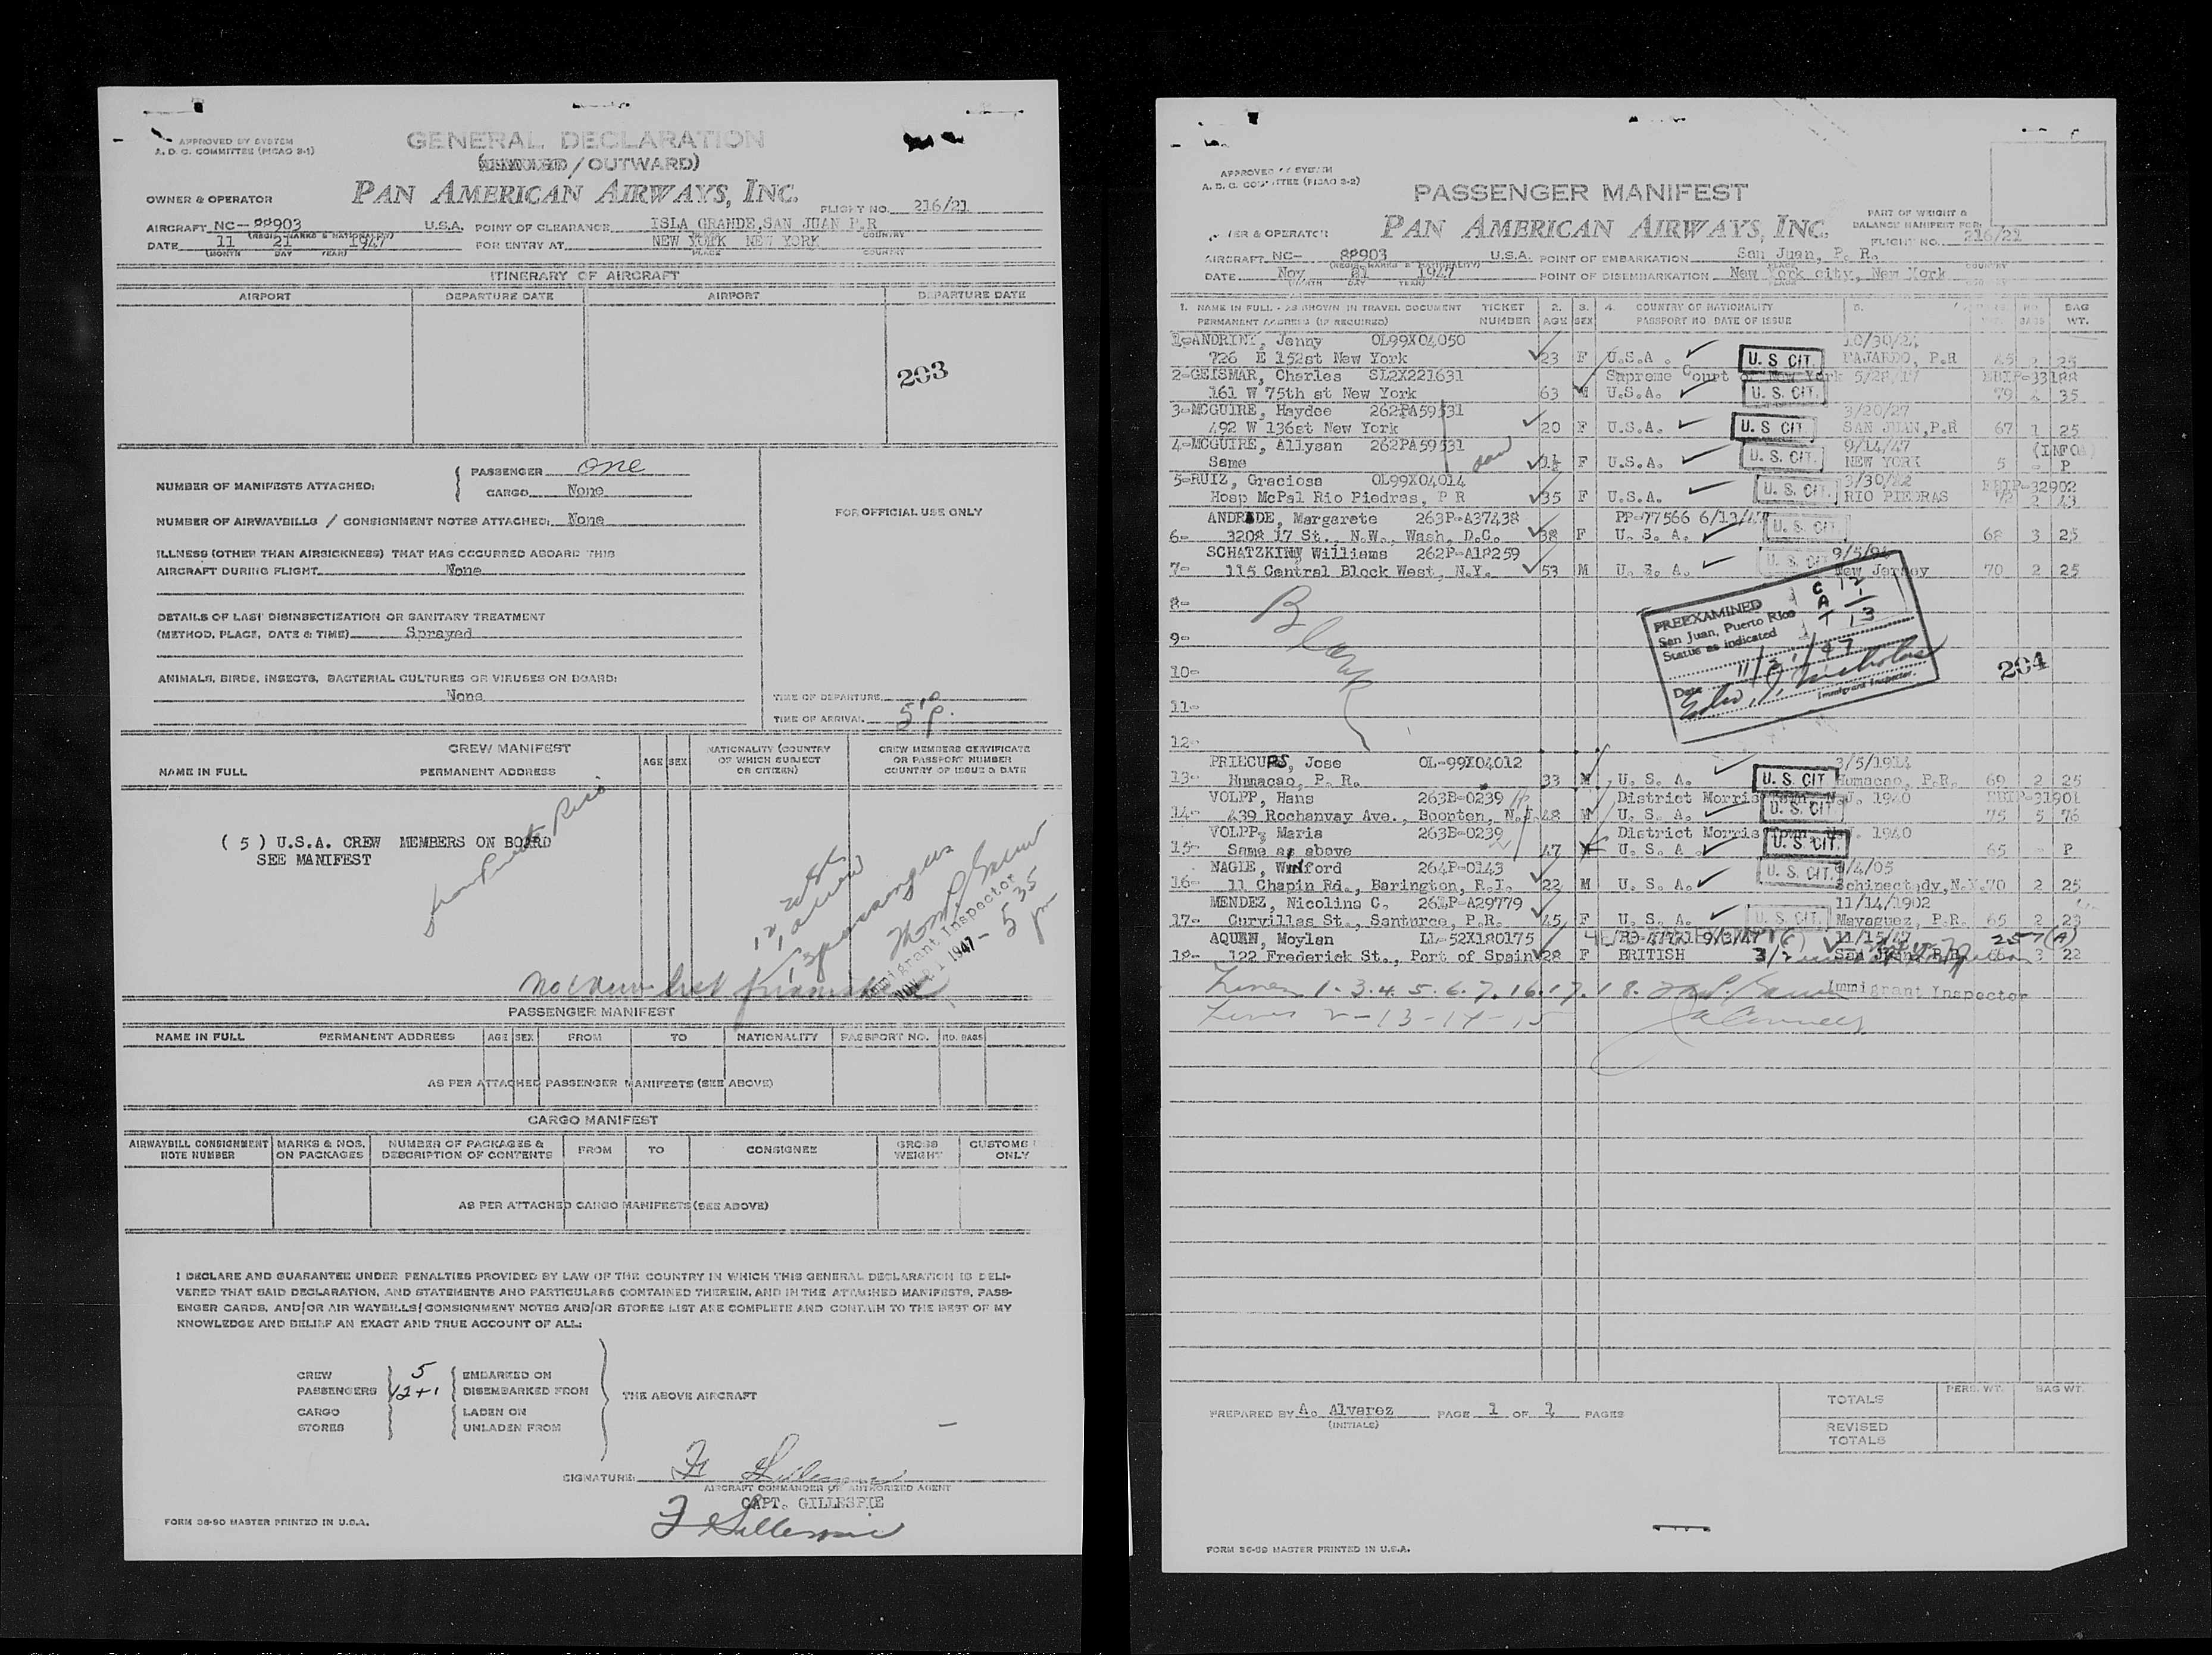 APPROVED BY SYSTEM
A. D. C. COMMITTEE (PICAO 3-1)
GENERAL DECLARATION
/ OUTWARD)
OWNER & OPERATOR
PAN AMERICAN AIRWAYS, INC.
FLIGHT NO. 216/21
AIRCRAFT NC-88903 U.S.A. POINT OF CLEARANCE ISLA GRANDE, SAN JUAN P.R
(REGIS. MARKS & NATIONALITY) COUNTRY
DATE 11 21 1947 FOR ENTRY AT NEW YORK NEW YORK
(MONTH DAY YEAR) PLACE COUNTRY
ITINERARY OF AIRCRAFT
AIRPORT DEPARTURE DATE AIRPORT DEPARTURE DATE
203
NUMBER OF MANIFESTS ATTACHED: PASSENGER one
CARGO None
NUMBER OF AIRWAYBILLS / CONSIGNMENT NOTES ATTACHED: None
FOR OFFICIAL USE ONLY
ILLNESS (OTHER THAN AIRSICKNESS) THAT HAS OCCURRED ABOARD THIS
AIRCRAFT DURING FLIGHT None
DETAILS OF LAST DISINSECTIZATION OR SANITARY TREATMENT
(METHOD, PLACE, DATE & TIME) Sprayed
ANIMALS, BIRDS, INSECTS, BACTERIAL CULTURES OR VIRUSES ON BOARD:
None
TIME OF DEPARTURE
TIME OF ARRIVAL 5 10 P.
CREW MANIFEST
NAME IN FULL PERMANENT ADDRESS AGE SEX NATIONALITY (COUNTRY OF WHICH SUBJECT OR CITIZEN) CREW MEMBERS CERTIFICATE OR PASSPORT NUMBER COUNTRY OF ISSUE & DATE
from Puerto Rico
( 5 ) U.S.A. CREW MEMBERS ON BOARD
SEE MANIFEST
12 USC
1 alien
13 passengers
Immigrant Inspector
NOV 21 1947 - 5 35 pm
No crew list
PASSENGER MANIFEST
NAME IN FULL PERMANENT ADDRESS AGE SEX FROM TO NATIONALITY PASSPORT NO. NO. BAGS
AS PER ATTACHED PASSENGER MANIFESTS (SEE ABOVE)
CARGO MANIFEST
AIRWAYBILL CONSIGNMENT NOTE NUMBER MARKS & NOS. ON PACKAGES NUMBER OF PACKAGES & DESCRIPTION OF CONTENTS FROM TO CONSIGNEE GROSS WEIGHT CUSTOMS ONLY
AS PER ATTACHED CARGO MANIFESTS (SEE ABOVE)
I DECLARE AND GUARANTEE UNDER PENALTIES PROVIDED BY LAW OF THE COUNTRY IN WHICH THIS GENERAL DECLARATION IS DELI-
VERED THAT SAID DECLARATION, AND STATEMENTS AND PARTICULARS CONTAINED THEREIN, AND IN THE ATTACHED MANIFESTS, PASS-
ENGER CARDS, AND/OR AIR WAYBILLS/CONSIGNMENT NOTES AND/OR STORES LIST ARE COMPLETE AND CONTAIN TO THE BEST OF MY
KNOWLEDGE AND BELIEF AN EXACT AND TRUE ACCOUNT OF ALL:
CREW 5 EMBARKED ON
PASSENGERS 12+1 DISEMBARKED FROM THE ABOVE AIRCRAFT
CARGO LADEN ON
STORES UNLADEN FROM
SIGNATURE:
AIRCRAFT COMMANDER OR AUTHORIZED AGENT
CAPT. GILLESPIE
F Gillespie
FORM 36-90 MASTER PRINTED IN U.S.A.
APPROVED BY SYSTEM
A. D. C. COMMITTEE (PICAO 3-2)
PASSENGER MANIFEST
PART OF WEIGHT &
BALANCE MANIFEST FOR
& OPERATOR
PAN AMERICAN AIRWAYS, INC.
FLIGHT NO. 216/21
AIRCRAFT NC- 88903 U.S.A. POINT OF EMBARKATION San Juan, P. R.
(REGIS. MARKS & NATIONALITY) PLACE COUNTRY
DATE Nov 21 1947 POINT OF DISEMBARKATION New York city, New York
(MONTH DAY YEAR) PLACE
1. NAME IN FULL - AS SHOWN IN TRAVEL DOCUMENT TICKET 2. 3. 4. COUNTRY OF NATIONALITY 5. NO. BAG
PERMANENT ADDRESS (IF REQUIRED) NUMBER AGE SEX PASSPORT NO. DATE OF ISSUE BAGS WT.
1-ANDRINY, Jenny OL99X04050
726 E 152st New York 23 F U.S.A. U. S. CIT. FAJARDO, P.R 25
2-GEISMAR, Charles SL2X221631 Supreme Court of New York 5/28/17 EBIP-33188
161 W 75th st New York 63 M U.S.A. U. S. CIT. 79 35
3-MCGUIRE, Haydee 262PA59531 3/20/27
492 W 136st New York 20 F U.S.A. U. S. CIT. SAN JUAN, P.R 67 1 25
4-MCGUIRE, Allysan 262PA59531 9/14/47
Same F U.S.A. U. S. CIT. NEW YORK 5 - P
5-RUIZ, Graciosa OL99X04014 EBIP-32902
Hosp McPal Rio Piedras, P R 35 F U.S.A. U. S. CIT. RIO PIEDRAS 2 43
ANDRADE, Margarete 263P-A37438 PP-77566
6- 3208 17 St., N.W., Wash, D.C. 38 F U. S. A. U. S. CIT. 68 3 25
SCHATZKINN Williams 262P-A18259
7- 115 Central Block West, N.Y. 53 M U. S. A. U. S. CIT. New Jersey 70 2 25
8-
9-
10-
11-
12-
Blank
PREEXAMINED
San Juan, Puerto Rico
Status as indicated
C 12
A 1
T 13
Date 11/21/47
Immigrant Inspector.
204
PRILCUPS, Jose OL-99X04012 3/5/1914
13- Humacao, P. R. 33 M U. S. A. U. S. CIT. Humacao, P.R. 69 2 25
VOLPP, Hans 263B-0239 District Morris Town N.J. 1940 EBIP-31901
14- 439 Rochanvay Ave., Boonton, N.J. 48 M U. S. A. U. S. CIT. 75 5 76
VOLPP, Maria 263B-0239 District Morris Town N.J. 1940
15- Same as above 47 U. S. A. U. S. CIT. 65 - P
NAGLE, Winford 264P-0143 /4/05
16- 11 Chapin Rd., Barington, R.I. 22 M U. S. A. U. S. CIT. Schinectady, N.Y. 70 2 25
MENDEZ, Nicolina C. 264P-A29779 11/14/1902
17- Curvillas St., Santurce, P.R. 45 F U. S. A. U. S. CIT. Mayaguez, P.R. 65 2 23
AQUAN, Moylan LL-52X180175 9/3/47 11/15/47 257(A)
18- 122 Frederick St., Port of Spain 28 F BRITISH 3/2 San Juan P.R. 3 22
Lines 1. 3. 4. 5. 6. 7. 16. 17. 18. Immigrant Inspector
Lines 2 - 13 - 14 - 15
TOTALS PERS. WT. BAG WT.
PREPARED BY A. Alvarez PAGE 1 OF 1 PAGES
(INITIALS)
REVISED
TOTALS
FORM 36-89 MASTER PRINTED IN U.S.A.